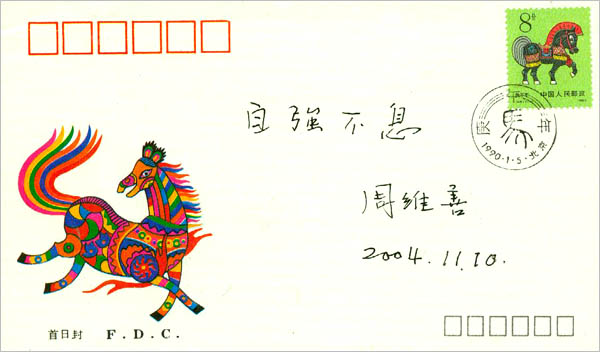 8分
中国人民邮政
庚 午 年
1990·1·5·北京
自强不息
周维善
2004.11.10.
首日封 F.D.C.